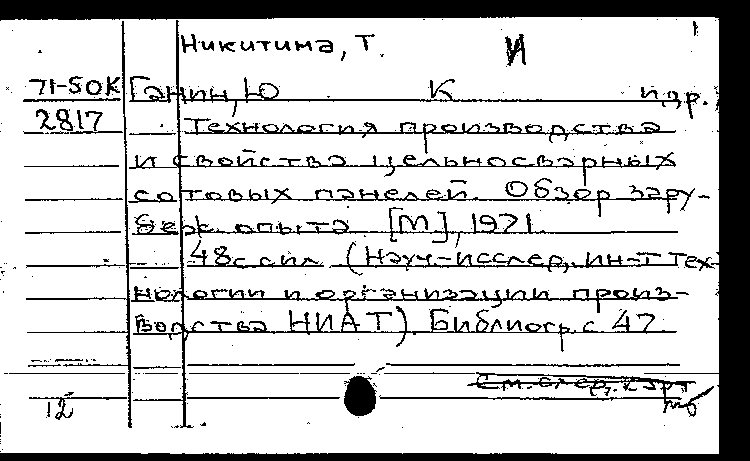 Никитина, Т. И
71-50К Ганин, Ю К идр.
2817 Технология производства
и свойства цельносварных
сотовых панелей. Обзор зару-
беж. опыта. [М], 1971.
48с сил (Науч-исслед, ин-т тех-
нологии и организации произ-
водства НИАТ). Библиогр. с 47.
См. след. карт
12